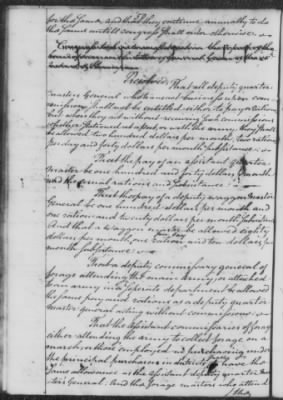 for the same and that they continue annually to do
the same untill congress shall order otherwise.
Congress took into consideration the report of the
Resolved, That all deputy quarter
masters General whose business is upon com-
mission, shall not be entitled either to pay or rations
but when they act without receiving such commissions
whether stationed at a post, or with the army, they shall
be allowed two hundred dollars per month, two rations
per day and forty dollars per month subsistance
That the pay of an assistant quarter
master be one hundred and forty dollars p month
and the usual rations and subsistance
That the pay of a deputy waggon master
General be one hundred dollars per month and
one ration and twenty dollars per month subsistance
And that a waggon master be allowed eighty
dollars per month, one ration and ten dollars per
month subsistance
That a deputy commissary general of
forage attending the main army, or attached
to an army in a seperate department be allowed
the same pay and rations as a deputy quarter
master general acting without commissions
That the assistant commissaries of forage
either attending the army to collect forage on a
march, or those employed in purchasing under
the principal purchasers in districts have the
same allowance as the assistant deputy quarter mas-
ters General. And that forage masters who attend
the